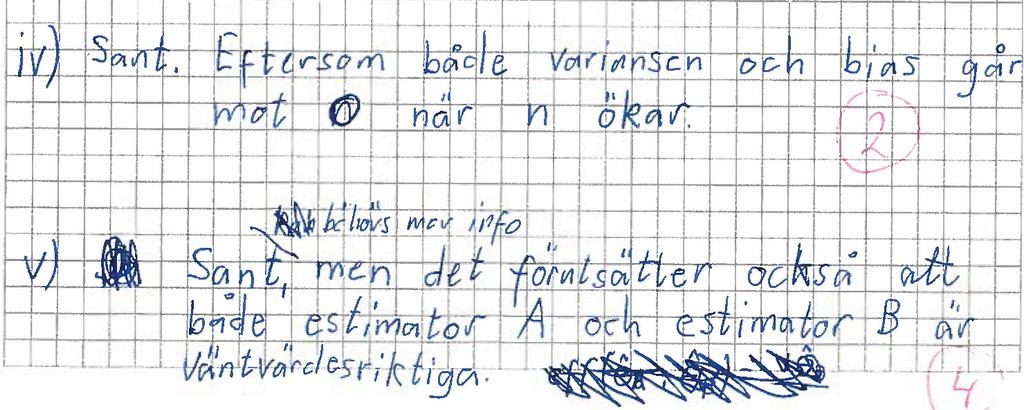 iv) Sant. Eftersom både variansen och bias går
mot 0 när n ökar.
2
behövs mer info
v) Sant, men det förutsätter också att
både estimator A och estimator B är
väntvärdesriktiga.
4